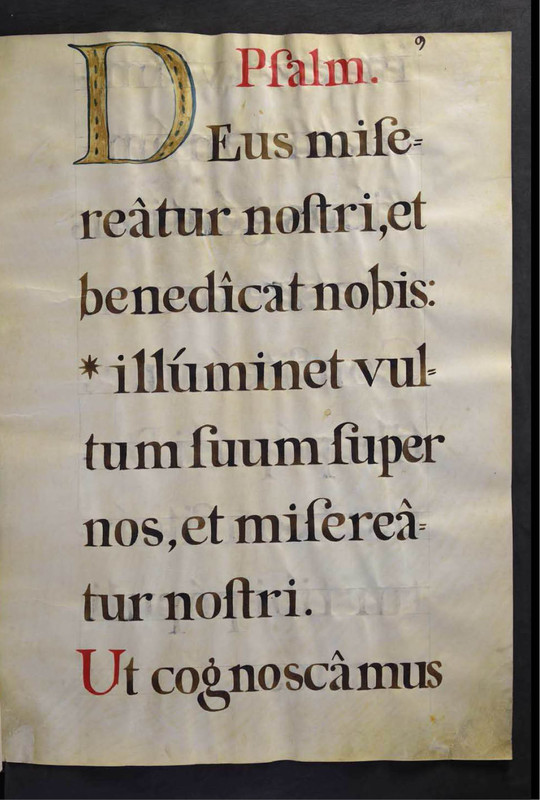 9
Pſalm.
DEus miſe=
reâtur noſtri, et
benedîcat nobis:
* illúminet vul=
tum ſuum ſuper
nos, et miſereâ=
tur noſtri.
Ut cognoscâmus